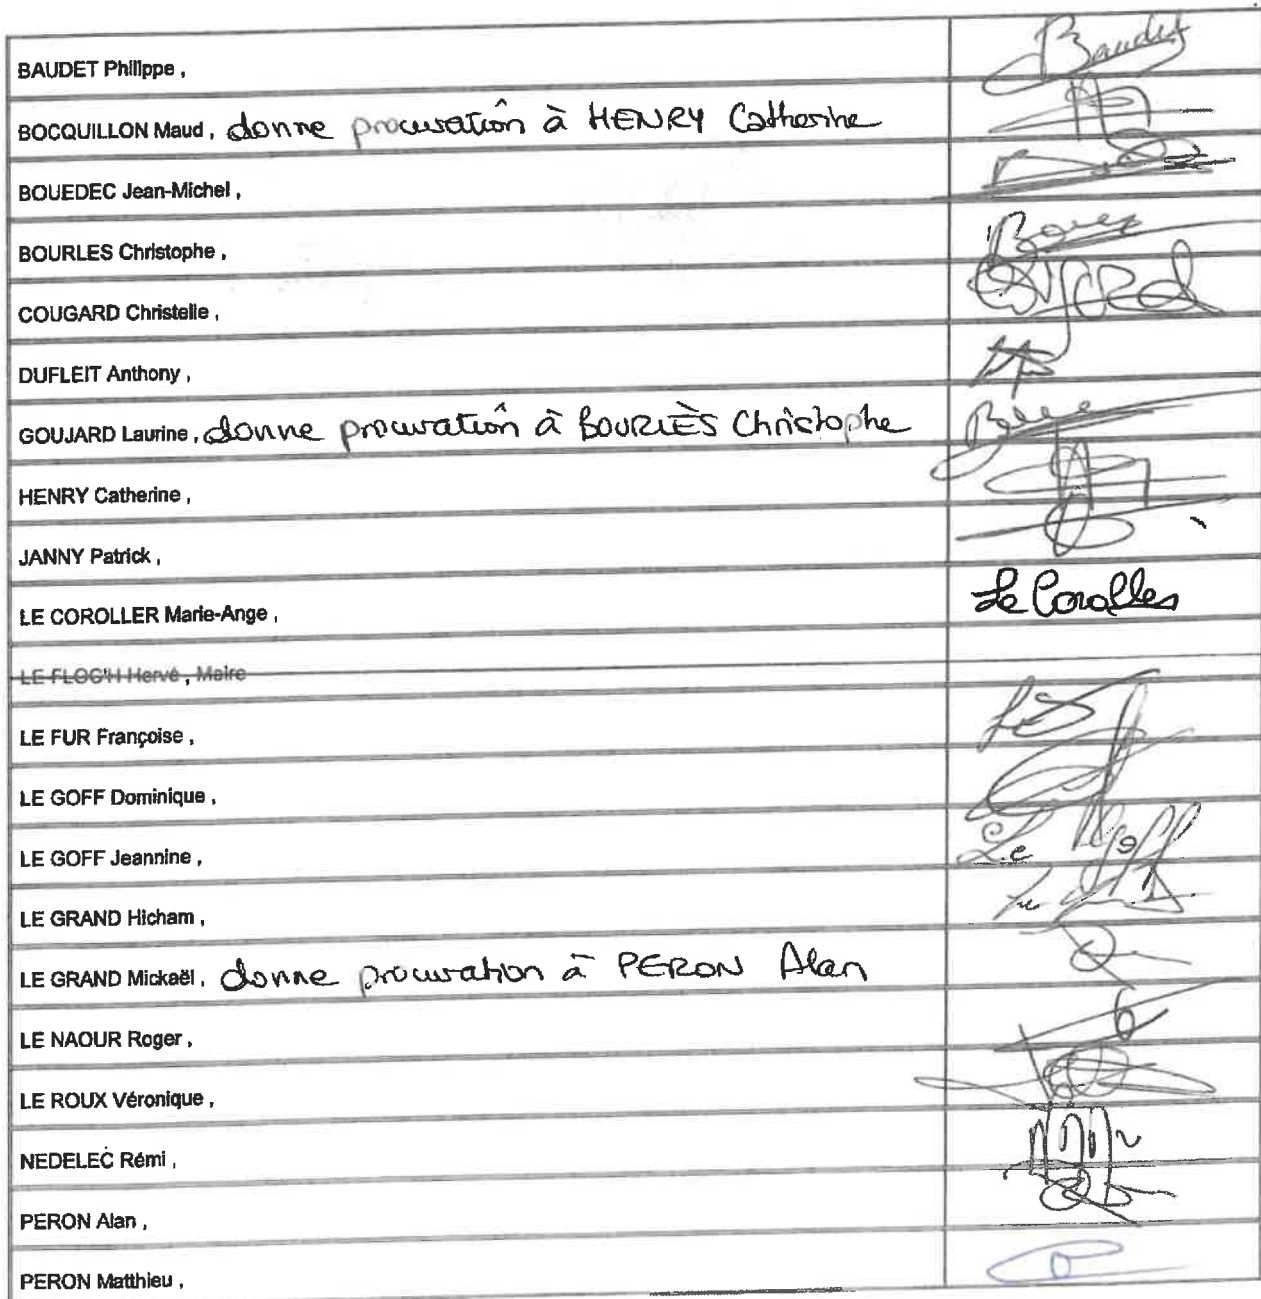 BAUDET Philippe, Baudet
BOCQUILLON Maud, donne procuration à HENRY Catherine
BOUEDEC Jean-Michel,
BOURLES Christophe,
COUGARD Christelle, COUGARD
DUFLEIT Anthony,
GOUJARD Laurine, donne procuration à BOURLÈS Christophe
HENRY Catherine,
JANNY Patrick,
LE COROLLER Marie-Ange, Le Coroller
LE FLOC'H Hervé, Maire
LE FUR Françoise,
LE GOFF Dominique,
LE GOFF Jeannine, Le Goff
LE GRAND Hicham,
LE GRAND Mickaël, donne procuration à PERON Alan
LE NAOUR Roger,
LE ROUX Véronique,
NEDELEC Rémi,
PERON Alan,
PERON Matthieu,